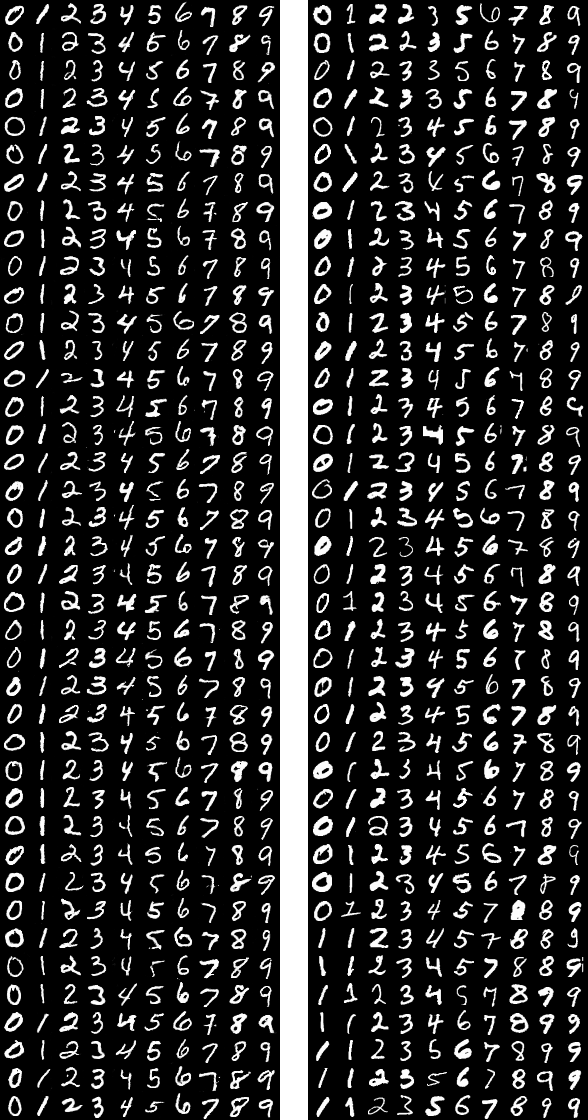 0 1 2 3 4 5 6 7 8 9
0 1 2 3 4 5 6 7 8 9
0 1 2 3 4 5 6 7 8 9
0 1 2 3 4 5 6 7 8 9
0 1 2 3 4 5 6 7 8 9
0 1 2 3 4 5 6 7 8 9
0 1 2 3 4 5 6 7 8 9
0 1 2 3 4 5 6 7 8 9
0 1 2 3 4 5 6 7 8 9
0 1 2 3 4 5 6 7 8 9
0 1 2 3 4 5 6 7 8 9
0 1 2 3 4 5 6 7 8 9
0 1 2 3 4 5 6 7 8 9
0 1 2 3 4 5 6 7 8 9
0 1 2 3 4 5 6 7 8 9
0 1 2 3 4 5 6 7 8 9
0 1 2 3 4 5 6 7 8 9
0 1 2 3 4 5 6 7 8 9
0 1 2 3 4 5 6 7 8 9
0 1 2 3 4 5 6 7 8 9
0 1 2 3 4 5 6 7 8 9
0 1 2 3 4 5 6 7 8 9
0 1 2 3 4 5 6 7 8 9
0 1 2 3 4 5 6 7 8 9
0 1 2 3 4 5 6 7 8 9
0 1 2 3 4 5 6 7 8 9
0 1 2 3 4 5 6 7 8 9
0 1 2 3 4 5 6 7 8 9
0 1 2 3 4 5 6 7 8 9
0 1 2 3 4 5 6 7 8 9
0 1 2 3 4 5 6 7 8 9
0 1 2 3 4 5 6 7 8 9
0 1 2 3 4 5 6 7 8 9
0 1 2 3 4 5 6 7 8 9
0 1 2 3 4 5 6 7 8 9
0 1 2 3 4 5 6 7 8 9
0 1 2 3 4 5 6 7 8 9
0 1 2 3 4 5 6 7 8 9
0 1 2 3 4 5 6 7 8 9
0 1 2 3 4 5 6 7 8 9
0 1 2 2 3 5 6 7 8 9
0 1 2 2 3 5 6 7 8 9
0 1 2 3 3 5 6 7 8 9
0 1 2 3 3 5 6 7 8 9
0 1 2 3 4 5 6 7 8 9
0 1 2 3 4 5 6 7 8 9
0 1 2 3 4 5 6 7 8 9
0 1 2 3 4 5 6 7 8 9
0 1 2 3 4 5 6 7 8 9
0 1 2 3 4 5 6 7 8 9
0 1 2 3 4 5 6 7 8 9
0 1 2 3 4 5 6 7 8 9
0 1 2 3 4 5 6 7 8 9
0 1 2 3 4 5 6 7 8 9
0 1 2 3 4 5 6 7 8 9
0 1 2 3 4 5 6 7 8 9
0 1 2 3 4 5 6 7 8 9
0 1 2 3 4 5 6 7 8 9
0 1 2 3 4 5 6 7 8 9
0 1 2 3 4 5 6 7 8 9
0 1 2 3 4 5 6 7 8 9
0 1 2 3 4 5 6 7 8 9
0 1 2 3 4 5 6 7 8 9
0 1 2 3 4 5 6 7 8 9
0 1 2 3 4 5 6 7 8 9
0 1 2 3 4 5 6 7 8 9
0 1 2 3 4 5 6 7 8 9
0 1 2 3 4 5 6 7 8 9
0 1 2 3 4 5 6 7 8 9
0 1 2 3 4 5 6 7 8 9
0 1 2 3 4 5 6 7 8 9
0 1 2 3 4 5 6 7 8 9
0 1 2 3 4 5 7 8 8 9
1 1 2 3 4 5 7 8 8 9
1 1 2 3 4 5 7 8 8 9
1 1 2 3 4 5 7 8 9 9
1 1 2 3 4 6 7 8 9 9
1 1 2 3 5 6 7 8 9 9
1 1 2 3 5 6 7 8 9 9
1 1 2 3 5 6 7 8 9 9